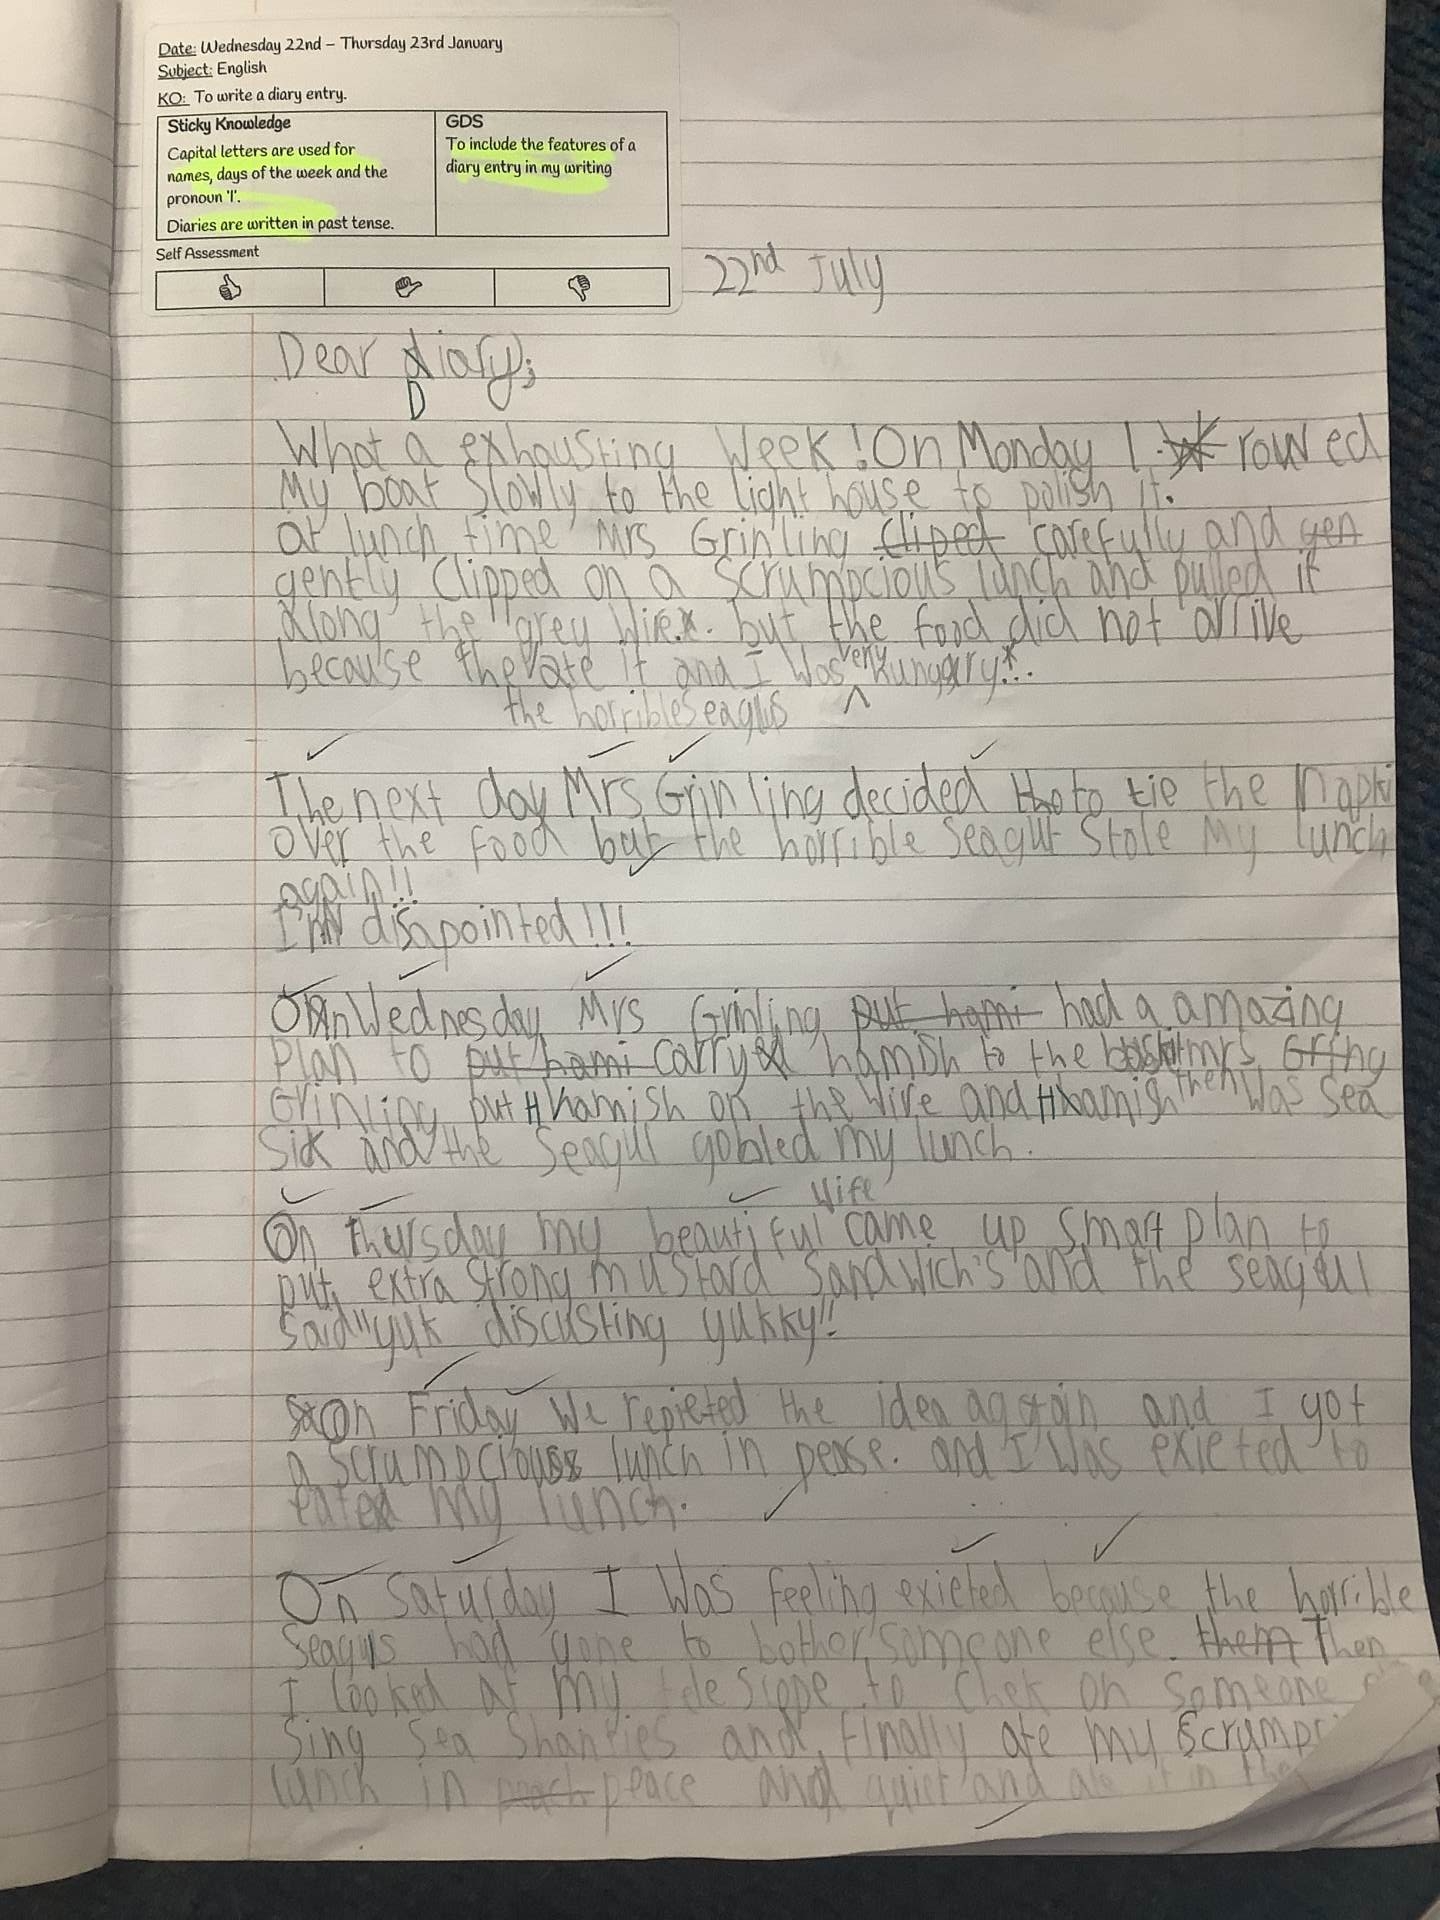 Date: Wednesday 22nd – Thursday 23rd January
Subject: English
KO: To write a diary entry.
Sticky Knowledge
Capital letters are used for
names, days of the week and the
pronoun 'I'.
Diaries are written in past tense.
GDS
To include the features of a
diary entry in my writing
Self Assessment
22nd July
Dear diary;
D
What a exhausting week! On Monday I rowed
My boat slowly to the light house to polish it.
at lunch time Mrs Grinling cliped carefully and gen
gently clipped on a scrumpcious lunch and pulled it
along the grey wire. but the food did not arrive
because the ate it and I was very hungary...
the horrible seaguls
The next day Mrs Grinling decided to tie the napki
over the food but the horrible seagul stole my lunch
again!!
I'm disapointed!!!
On Wednesday Mrs Grinling put hami had a amazing
plan to put hami carry hamish to the mrs Grling
Grinling put Hhamish on the wire and Hhamish then was sea
sick and the seagul gobled my lunch.
wife
On thursday my beautiful came up smart plan to
put extra strong mustard sandwich's and the seagul
said "yuk discusting yukky!!
On Friday we repieted the idea aggain and I got
a scrumpcious lunch in pease. and I was exieted to
eated my lunch.
On saturday I was feeling exieted because the horrible
seaguls had gone to bother someone else. them Then
I looked at my telescope to chek on someone
sing sea shanties and finally ate my scrumpci
lunch in peace and quiet and ate it in the